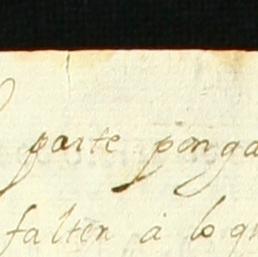 parte ponga
falten à lo qu